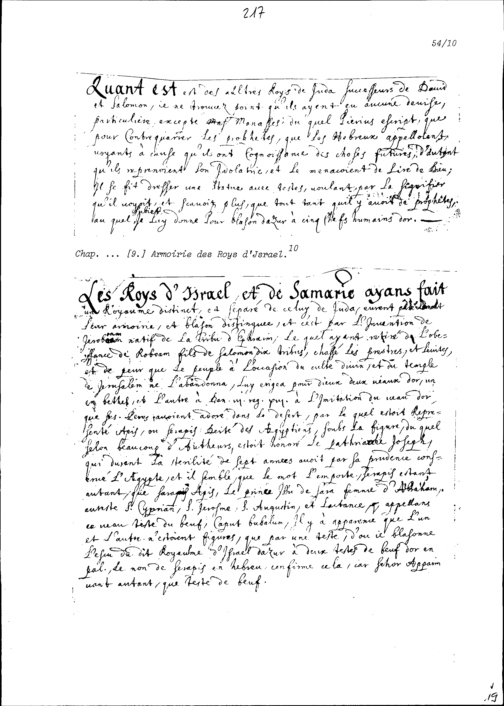 217
54/10
Quant est es des aultres Roys de Juda successeurs de Dauid
et Salomon, ie ne trouuez point qu'ils ayent eu aucune deuise,
particuliere, excepte Manasses: du quel Pierius escript, que
pour Contrequarrer les prophetes, que les Hebreux appelloient,
uoyants à cause qu'ils ont Cognoissance des choses futures, d'autant
qu'ils reprenoient son Idolatrie, et le menacoient de l'ire de Dieu;
Il se fit dresser une statue auec testes, uoulant par la signifier
qu'il uoyoit, et scauoit plus, que tout tant qu'il y auoit de prophetes,
au quel Luy donne pour blason dazur à cinq chefs humains dor.
Chap. ... [9.] Armoirie des Roys d'Jsrael.10
Les Roys d'Israel et de Samarie ayans fait
un Royaume distinct, et separé de celuy de Juda, eurent
leur armoirie, et blason distinguee, et cect par l'Inuention de
Jeroboam natif de La tribu d'Ephraim; Le quel ayant retiré de l'obe-
issance de Roboam fils de Salomon dix tribus, chassé les prestres, et leuites,
et de peur que le peuple à l'occasion du culte diuin, et du temple
de Jerusalem ne l'abandonna, luy erigea pour dieux deux ueaux dor, un
en bethel, et l'autre à Dan. à l'Imitation du ueau dor,
que ses peres auoient adoré dans le desert, par le quel estoit Repre-
senté Apis, ou serapis Deité des Aegyptiens, soubs la figure, du quel
selon beaucoup d'Autheurs, estoit honoré Le pathriarche Joseph,
qui durent la sterilité de sept annees auoit par sa prudence cons-
erué L'Aegypte, et il semble, que le mot l'emporte, serapis estant
autant, que Apis, Le prince de sara femme d'Abraham,
S. Cyprian, S. Jerosme, S. Augustin, et Lactance, appellans
ce ueau teste du beuf, Caput bubulum, Il y a apparence que l'un
et l'autre n'estoient figurés, que par une teste, d'ou ie blasonne
L'escu du dit Royaulme d'Israel dazur à deux testes de beuf dor en
pal. Le nom de serapis en hebreu confirme cela, car schor Appaim
uant autant, que teste de beuf.
19